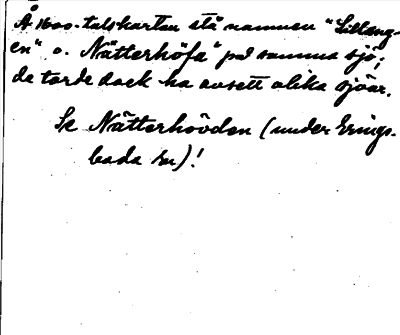 Å 1600-talskartan stå namnen "Silläng-
en" o. Nätterhöfd" på samma sjö;
de torde dock ha avsett olika sjöar.
Se Nätterhövden (under Erings-
boda sn)!